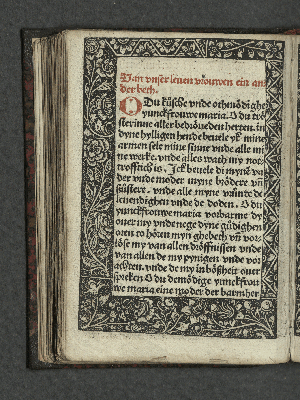 Van vnser leuen vrouwen ein an
der beth.
O Du küsche vnde othmodighe
yunckfrouwe maria. O du trö
sterinne aller bedröueden herten. in
dyne hylligen hende beuele yk mine
armen sele mine sinne vnde alle mi
ne werke. vnde alles wath my not
trofftich is. Jck beuele di mynē va
der vnde moder myne brödere vñ
süstere. vnde alle myne vründe de
leuendighen vnde de doden. O du
yunckfrouwe maria vorbarme dy
ouer my vnde nege dyne gudighen
oren to hören myn ghebeth vñ vor
löse my van allen dröffnissen vnde
van allen de my pynigen vnde vor
achten. vnde de my in bößheit ouer
spreken O du demödige yunckfrou
we maria eine moder der barmher